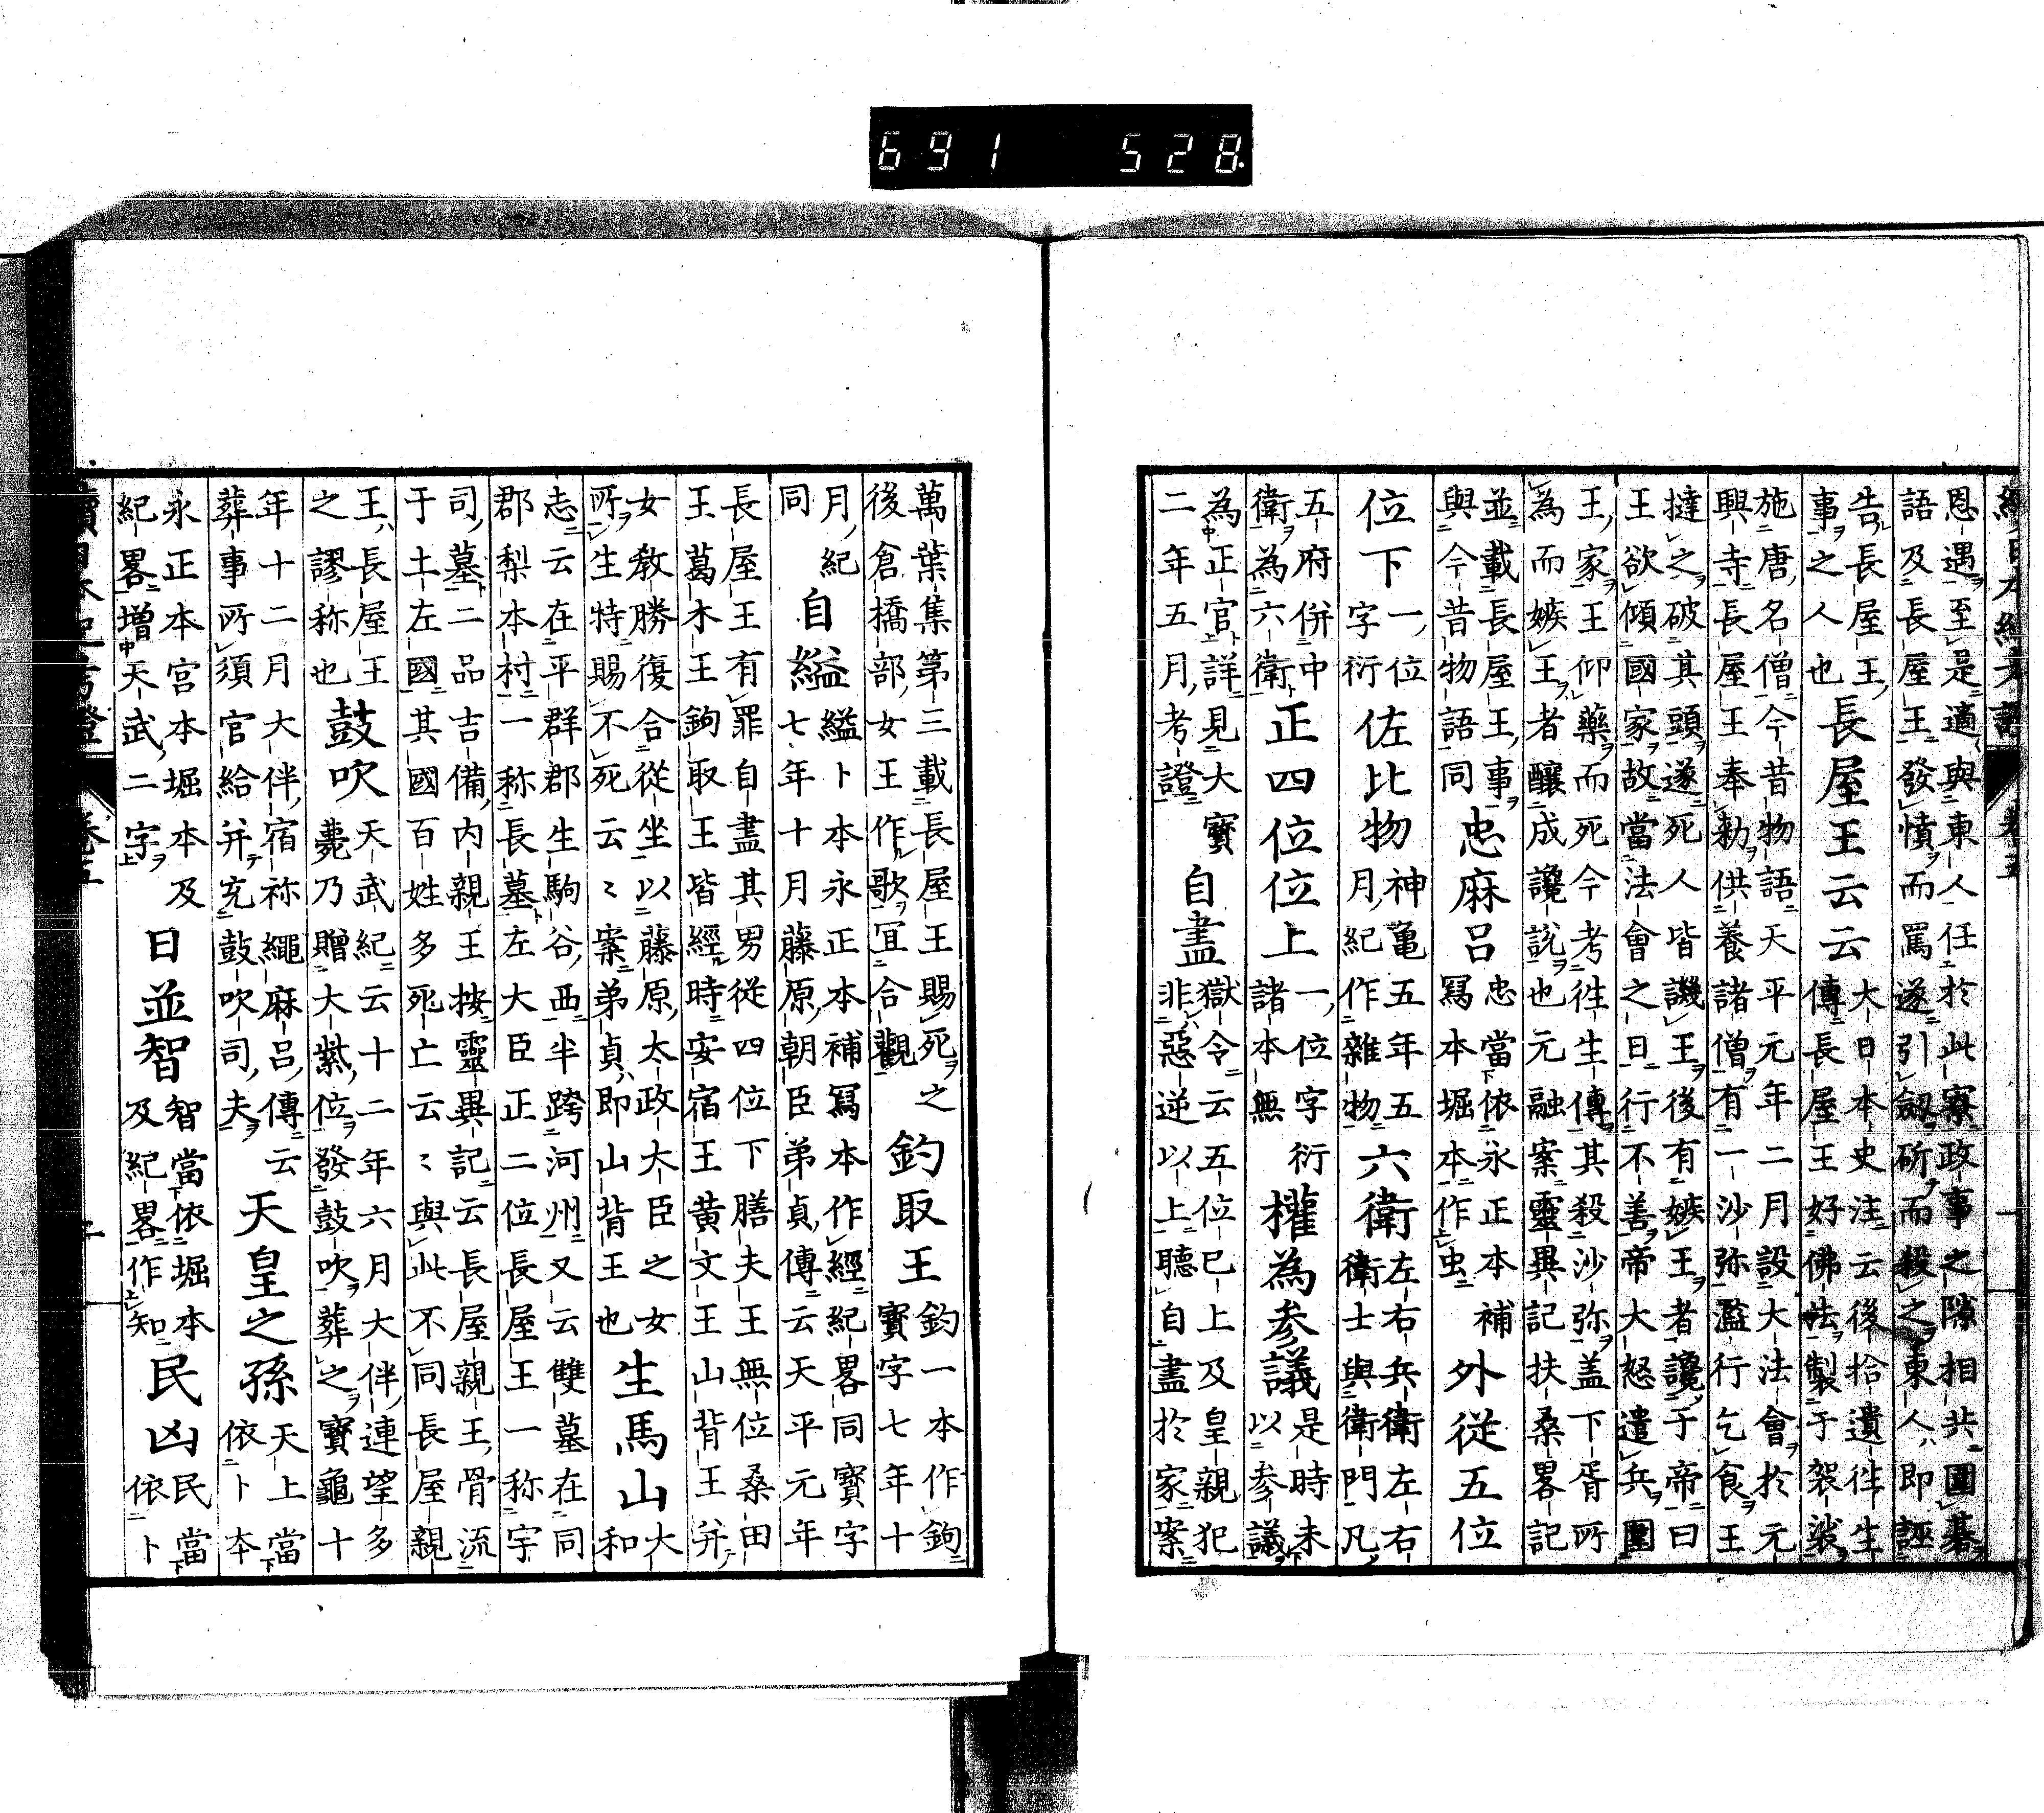 691 528
續日本紀考證 卷五
恩遇至是適與東人任於此寮政事之隙相共圍碁
語及長屋王發憤而罵遂引劔斫而殺之東人即誣
告長屋王
事之人也
長屋王云云
大日本史注云後拾遺往生
傳長屋王好佛法製于袈裟
施唐名僧今昔物語天平元年二月設大法會於元
興寺長屋王奉勅供養諸僧有一沙弥濫行乞食王
撻之破其頭遂死人皆譏王後有嫉王者讒于帝曰
王欲傾國家故當法會之日行不善帝大怒遣兵圍
王家王仰藥而死今考往生傳其殺沙弥盖下胥所
為而嫉王者釀成讒說也元融案靈異記扶桑畧記
並載長屋王事
與今昔物語同
忠麻呂
忠當依永正本補
冩本堀本作虫
外從五位
位下
一位
字衍
佐比物
神亀五年五
月紀作雜物
六衛
左右兵衛左右
衛士與衛門凡
五府併中
衛為六衛
正四位位上
一位字衍
諸本無
權為参議
是時未
以参議
為正官詳見大寳
二年五月考證
自盡
獄令云五位已上及皇親犯
非惡逆以上聽自盡於家案
萬葉集第三載長屋王賜死之
後倉橋部女王作歌冝合觀
釣取王
釣一本作鉤
寳字七年十
月紀
同
自縊
縊卜本永正本補冩本作經紀畧同寳字
七年十月藤原朝臣弟貞傳云天平元年
長屋王有罪自盡其男從四位下膳夫王無位桑田
王葛木王鉤取王皆經時安宿王黄文王山背王并
女敎勝復合從坐以藤原太政大臣之女
所生特賜不死云〻案弟貞即山背王也
生馬山
大
和
志云在平群郡生駒谷西半跨河州又云雙墓在同
郡梨本村一称長墓左大臣正二位長屋王一称宇
司墓二品吉備内親王按靈異記云長屋親王骨流
于土左國其國百姓多死亡云〻與此不同長屋親
王長屋王
之謬称也
鼓吹
天武紀云十二年六月大伴連望多
薨乃贈大紫位發鼓吹葬之寳龜十
年十二月大伴宿祢繩麻呂傳云
葬事所須官給并充鼓吹司夫
天皇之孫
天上當
依卜本
永正本宮本堀本及
紀畧増天武二字
日並智
智當依堀本
及紀畧作知
民凶
民當
依卜
續日本紀考證 卷五